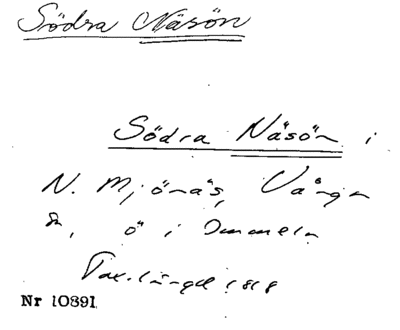 Södra Näsön
Södra Näsön i
N. Mjönäs, Vånga
sn, ö i Immeln
Tax.längd 1818
Nr 10891